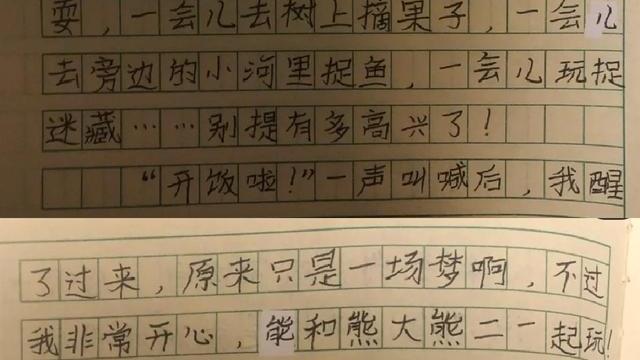 耍，一会儿去树上摘果子，一会儿
去旁边的小河里捉鱼，一会儿玩捉
迷藏……别提有多高兴了！
“开饭啦！”一声叫喊后，我醒
了过来，原来只是一场梦啊，不过
我非常开心，能和熊大熊二一起玩！